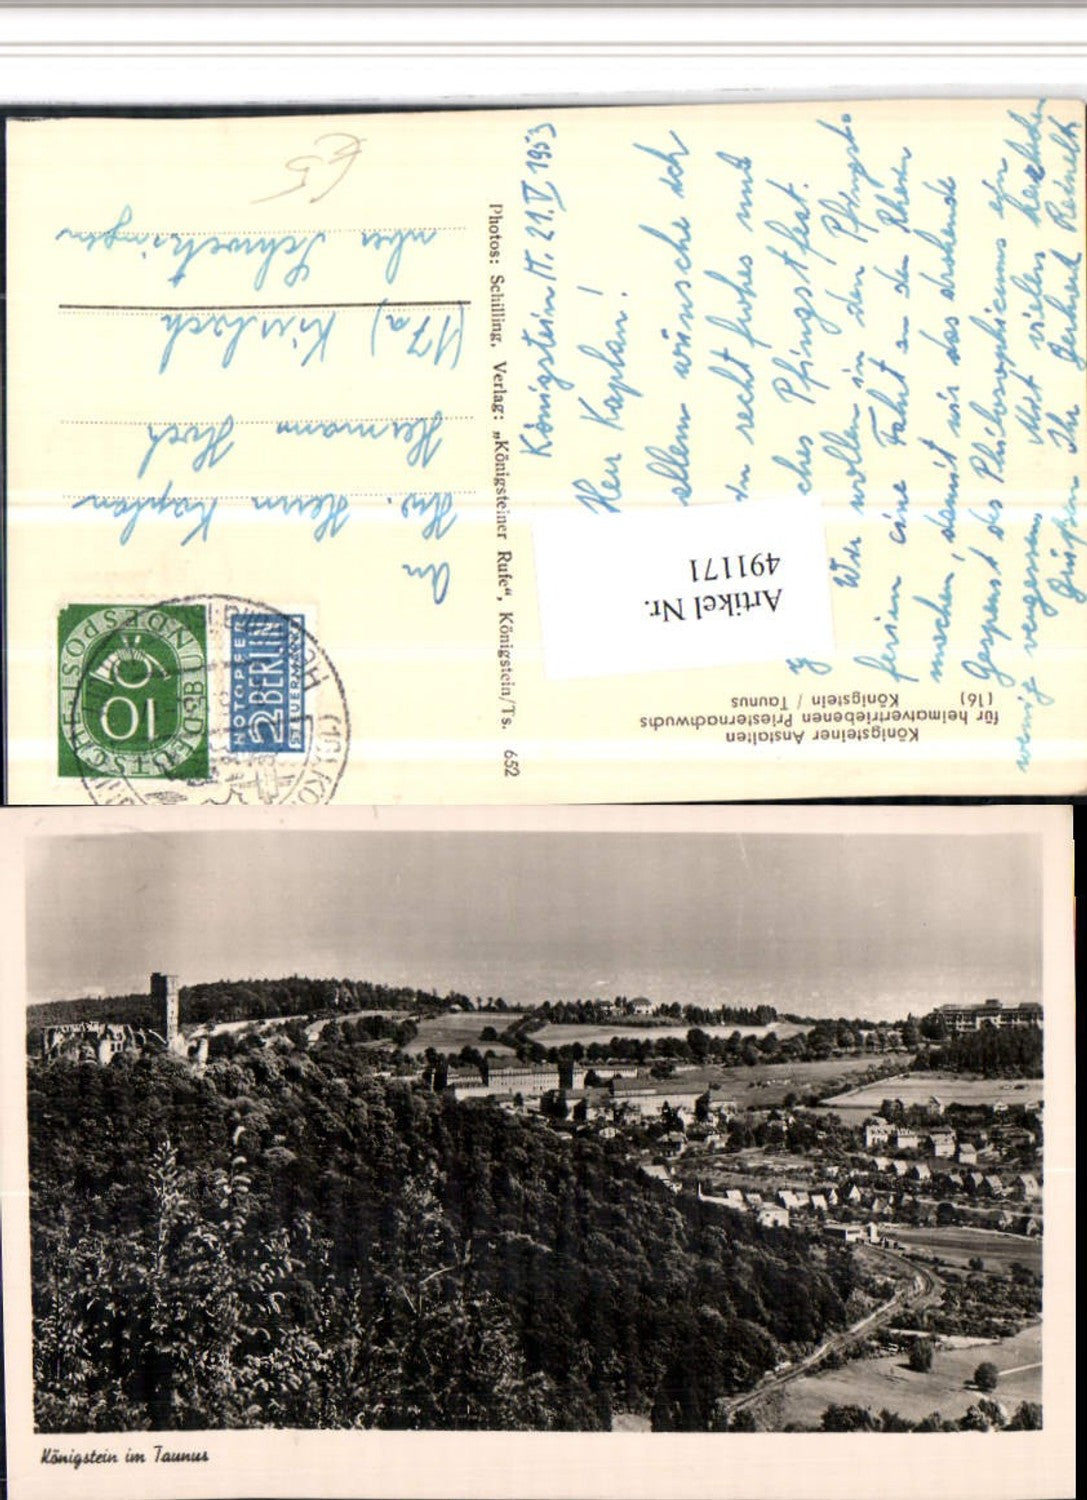 Königsteiner Anstalten
für heimatvertriebenen Priesternachwuchs
(16) Königstein / Taunus
Königstein/T. 21.V 1953
Herr Kaplan!
allem wünsche ich
recht frohes und
Pfingstfest.
Wir wollen in den Pfingst-
ferien eine Fahrt an den Rhein
machen, damit wir das drohende
Gespenst des Philosophicums ein
wenig vergessen. Mit vielen herzlichen
Grüßen Ihr Gerhard
Artikel Nr.
491171
Photos: Schilling, Verlag: „Königsteiner Rufe“, Königstein/Ts. 652
DEUTSCHE BUNDESPOST
10
NOTOPFER
2 BERLIN
STEUERMARKE
An
Hw. Herrn Kaplan
Hermann Hoch
(17a) Kirrlach
über Schwetzingen
€5
Königstein im Taunus